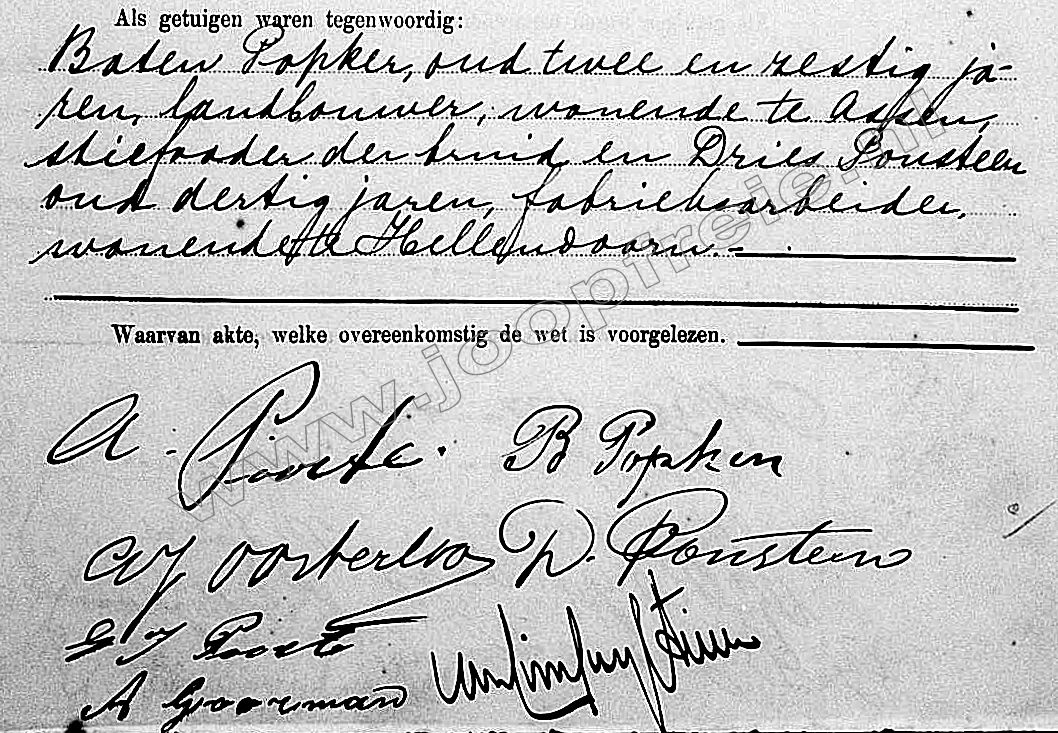 Als getuigen waren tegenwoordig:
Baten Popker, oud twee en zestig ja-
ren, landbouwer, wonende te Assen,
stiefvader der bruid en Dries Ponsteen
oud dertig jaren, fabrieksarbeider,
wonende te Hellendoorn.
Waarvan akte, welke overeenkomstig de wet is voorgelezen.
A. Poorte. B Popken
Oosterloo D. Ponsteen
G J Poorte
A Goorman
www.joopfreie.nl